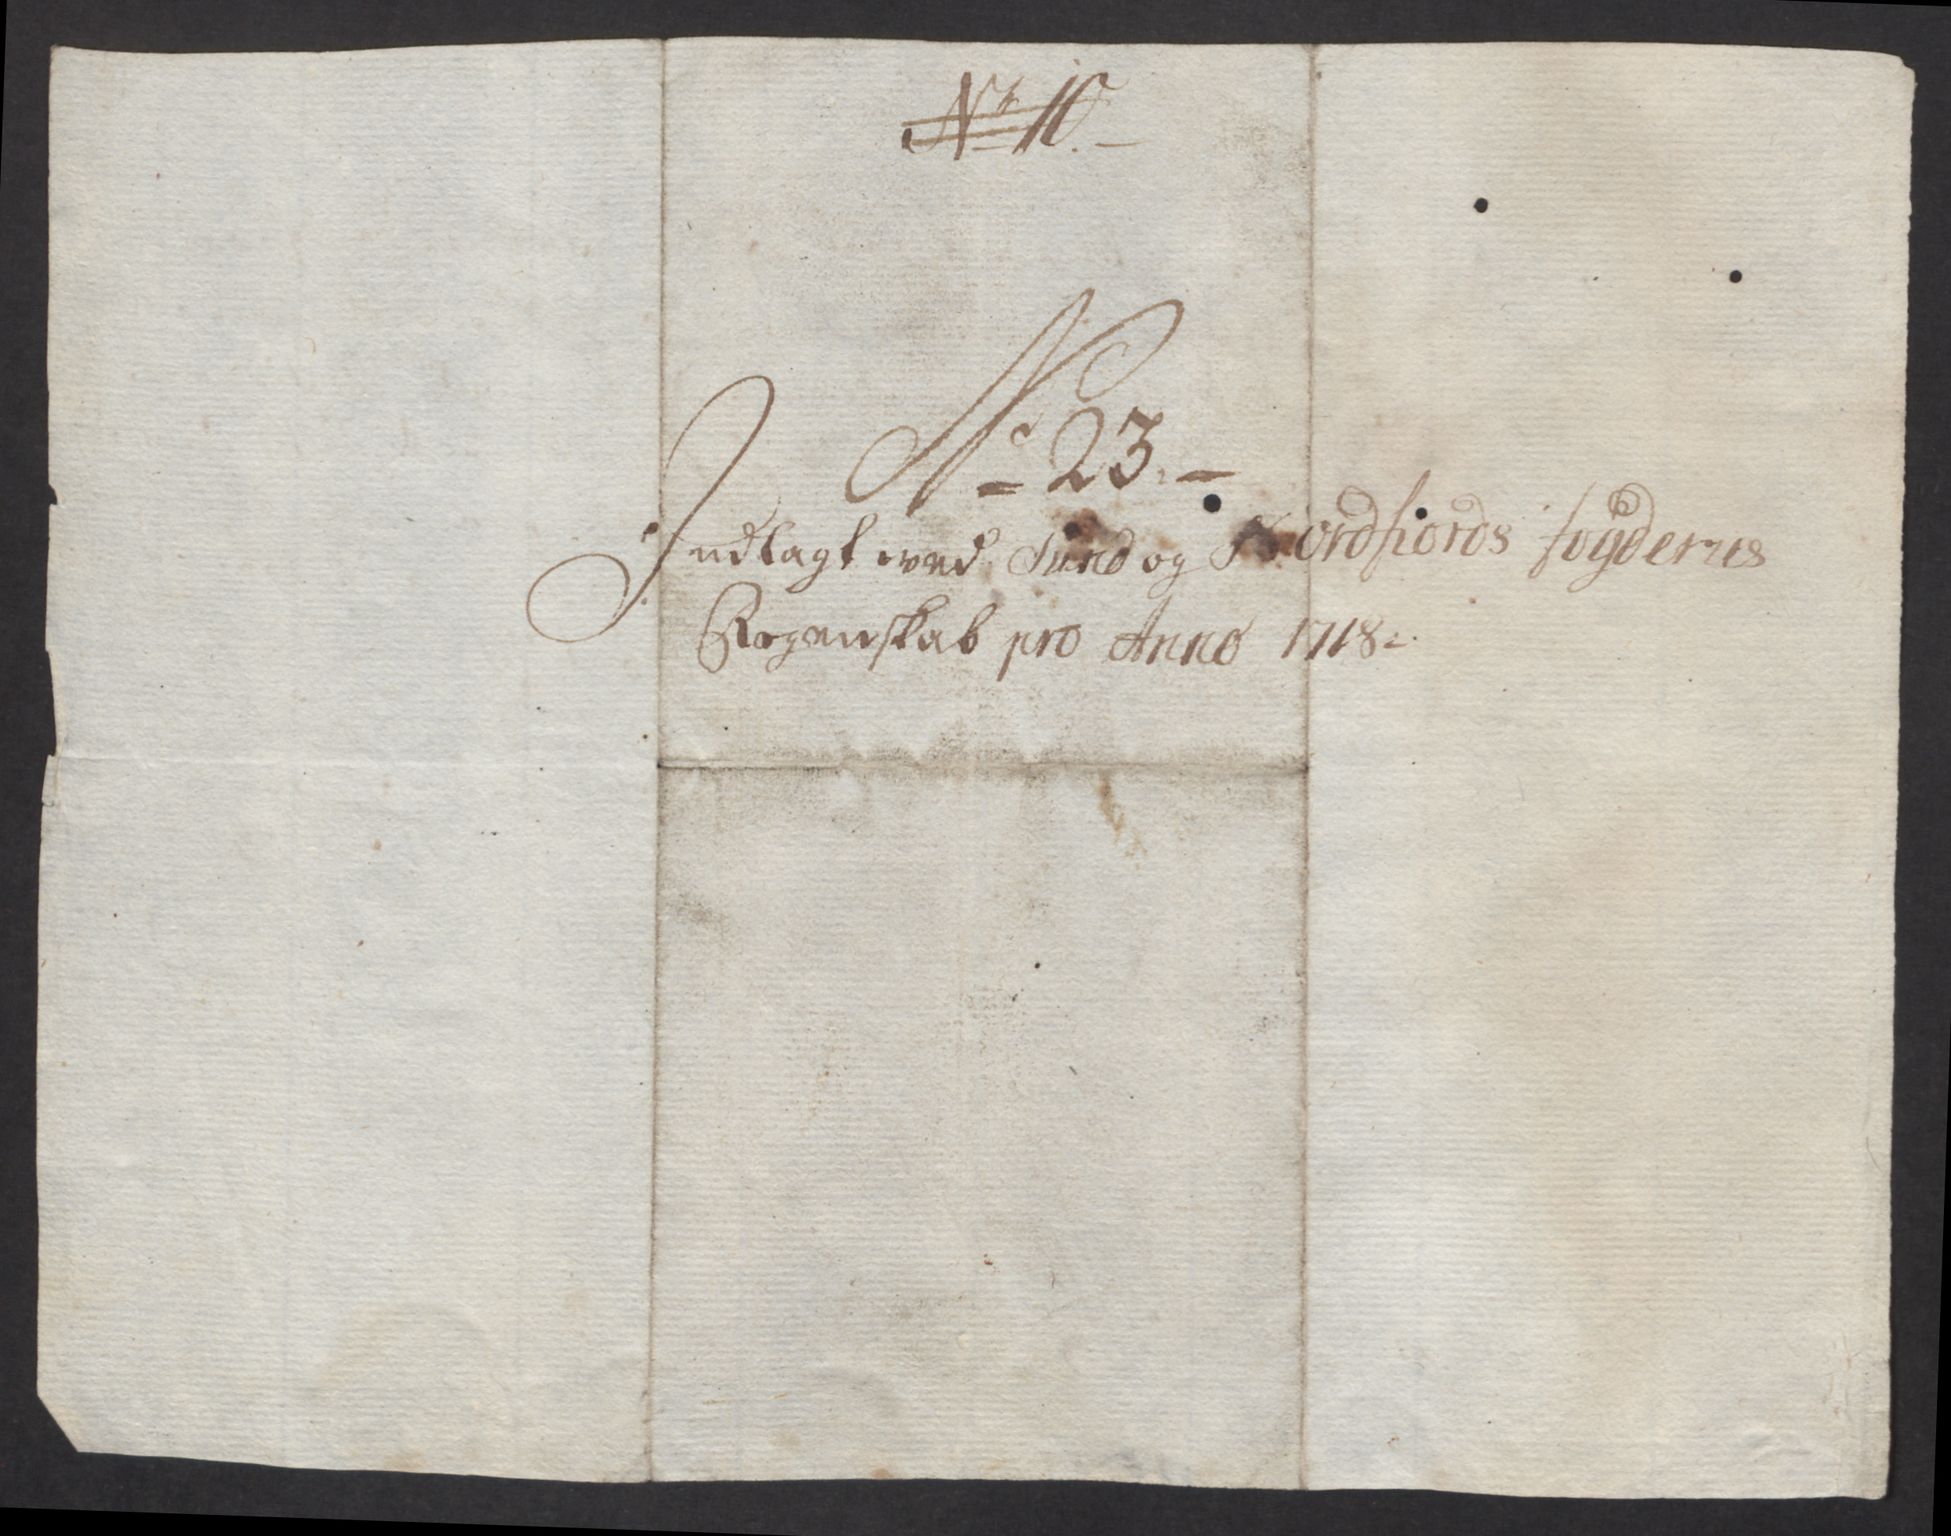 No 10.
No 23.
Indlagt ved Sund og Nordfiords fogderies
Regenskab pro Anno 1718.